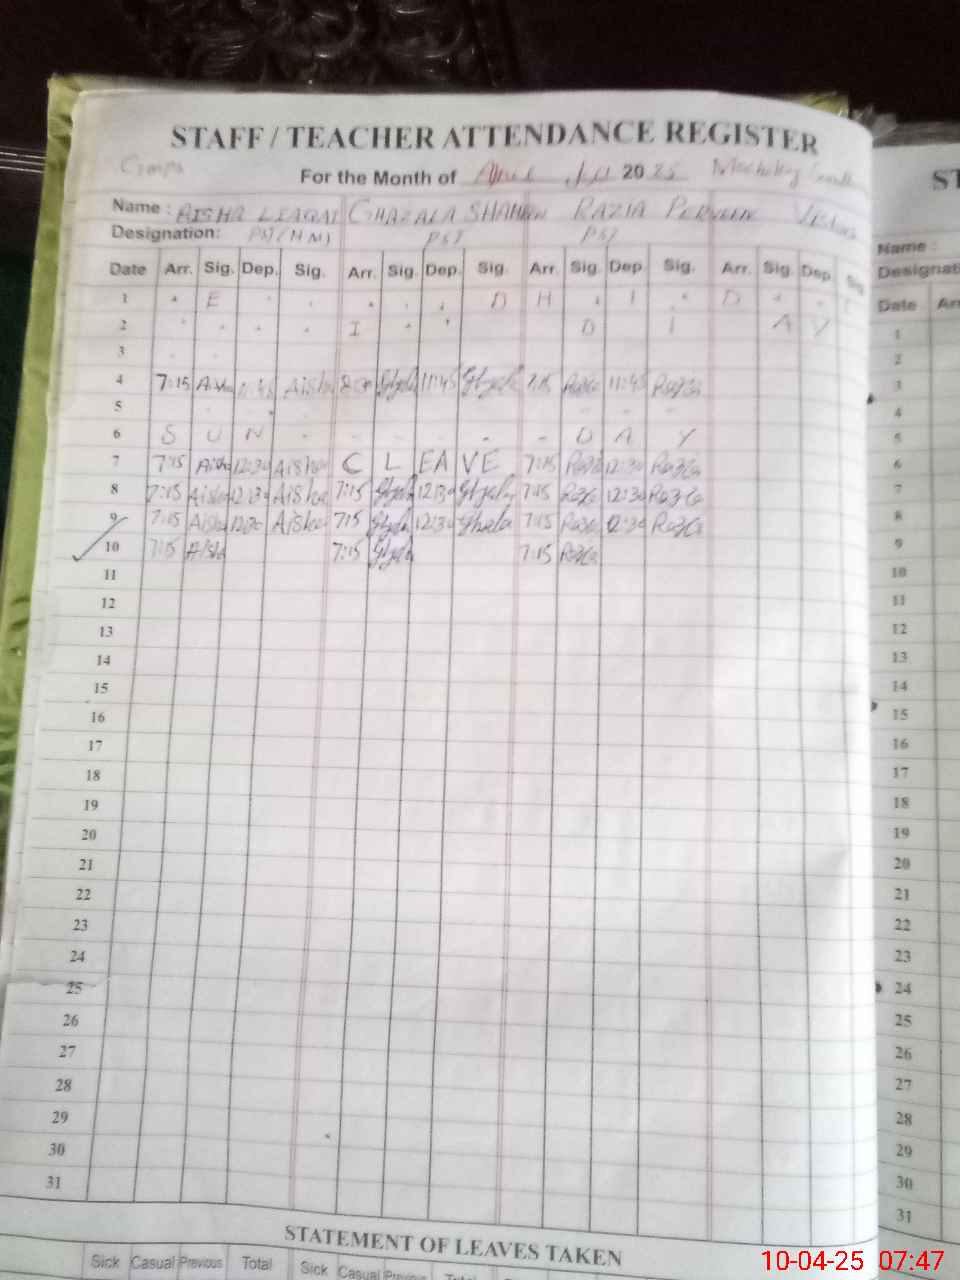 STAFF / TEACHER ATTENDANCE REGISTER
For the Month of April 2025
Name : AISHA LIAQAT GHAZALA SHAHEEN RAZIA PERVEEN
Designation: PST (H M) PST PST
Date Arr. Sig. Dep. Sig. Arr. Sig. Dep. Sig. Arr. Sig. Dep. Sig. Arr. Sig. Dep Sig
1 E D H I D
2 I D I A Y
3
4 7:15 Aisha 11:45 Aisha 8:00 11:45 7:15 Razia 11:45 Razia
5
6 S U N D A Y
7 7:15 Aisha 12:30 Aisha C L EAVE 7:15 Razia 12:30 Razia
8 7:15 Aisha 12:30 Aisha 7:15 12:30 7:15 Razia 12:30 Razia
9 7:15 Aisha 12:30 Aisha 7:15 12:30 7:15 Razia 12:30 Razia
10 7:15 Aisha 7:15 7:15 Razia
11
12
13
14
15
16
17
18
19
20
21
22
23
24
25
26
27
28
29
30
31
STATEMENT OF LEAVES TAKEN
Sick Casual Previous Total Sick Casual Previous
ST
Name :
Designati
Date Ar
1
2
3
4
5
6
7
8
9
10
11
12
13
14
15
16
17
18
19
20
21
22
23
24
25
26
27
28
29
30
31
10-04-25 07:47